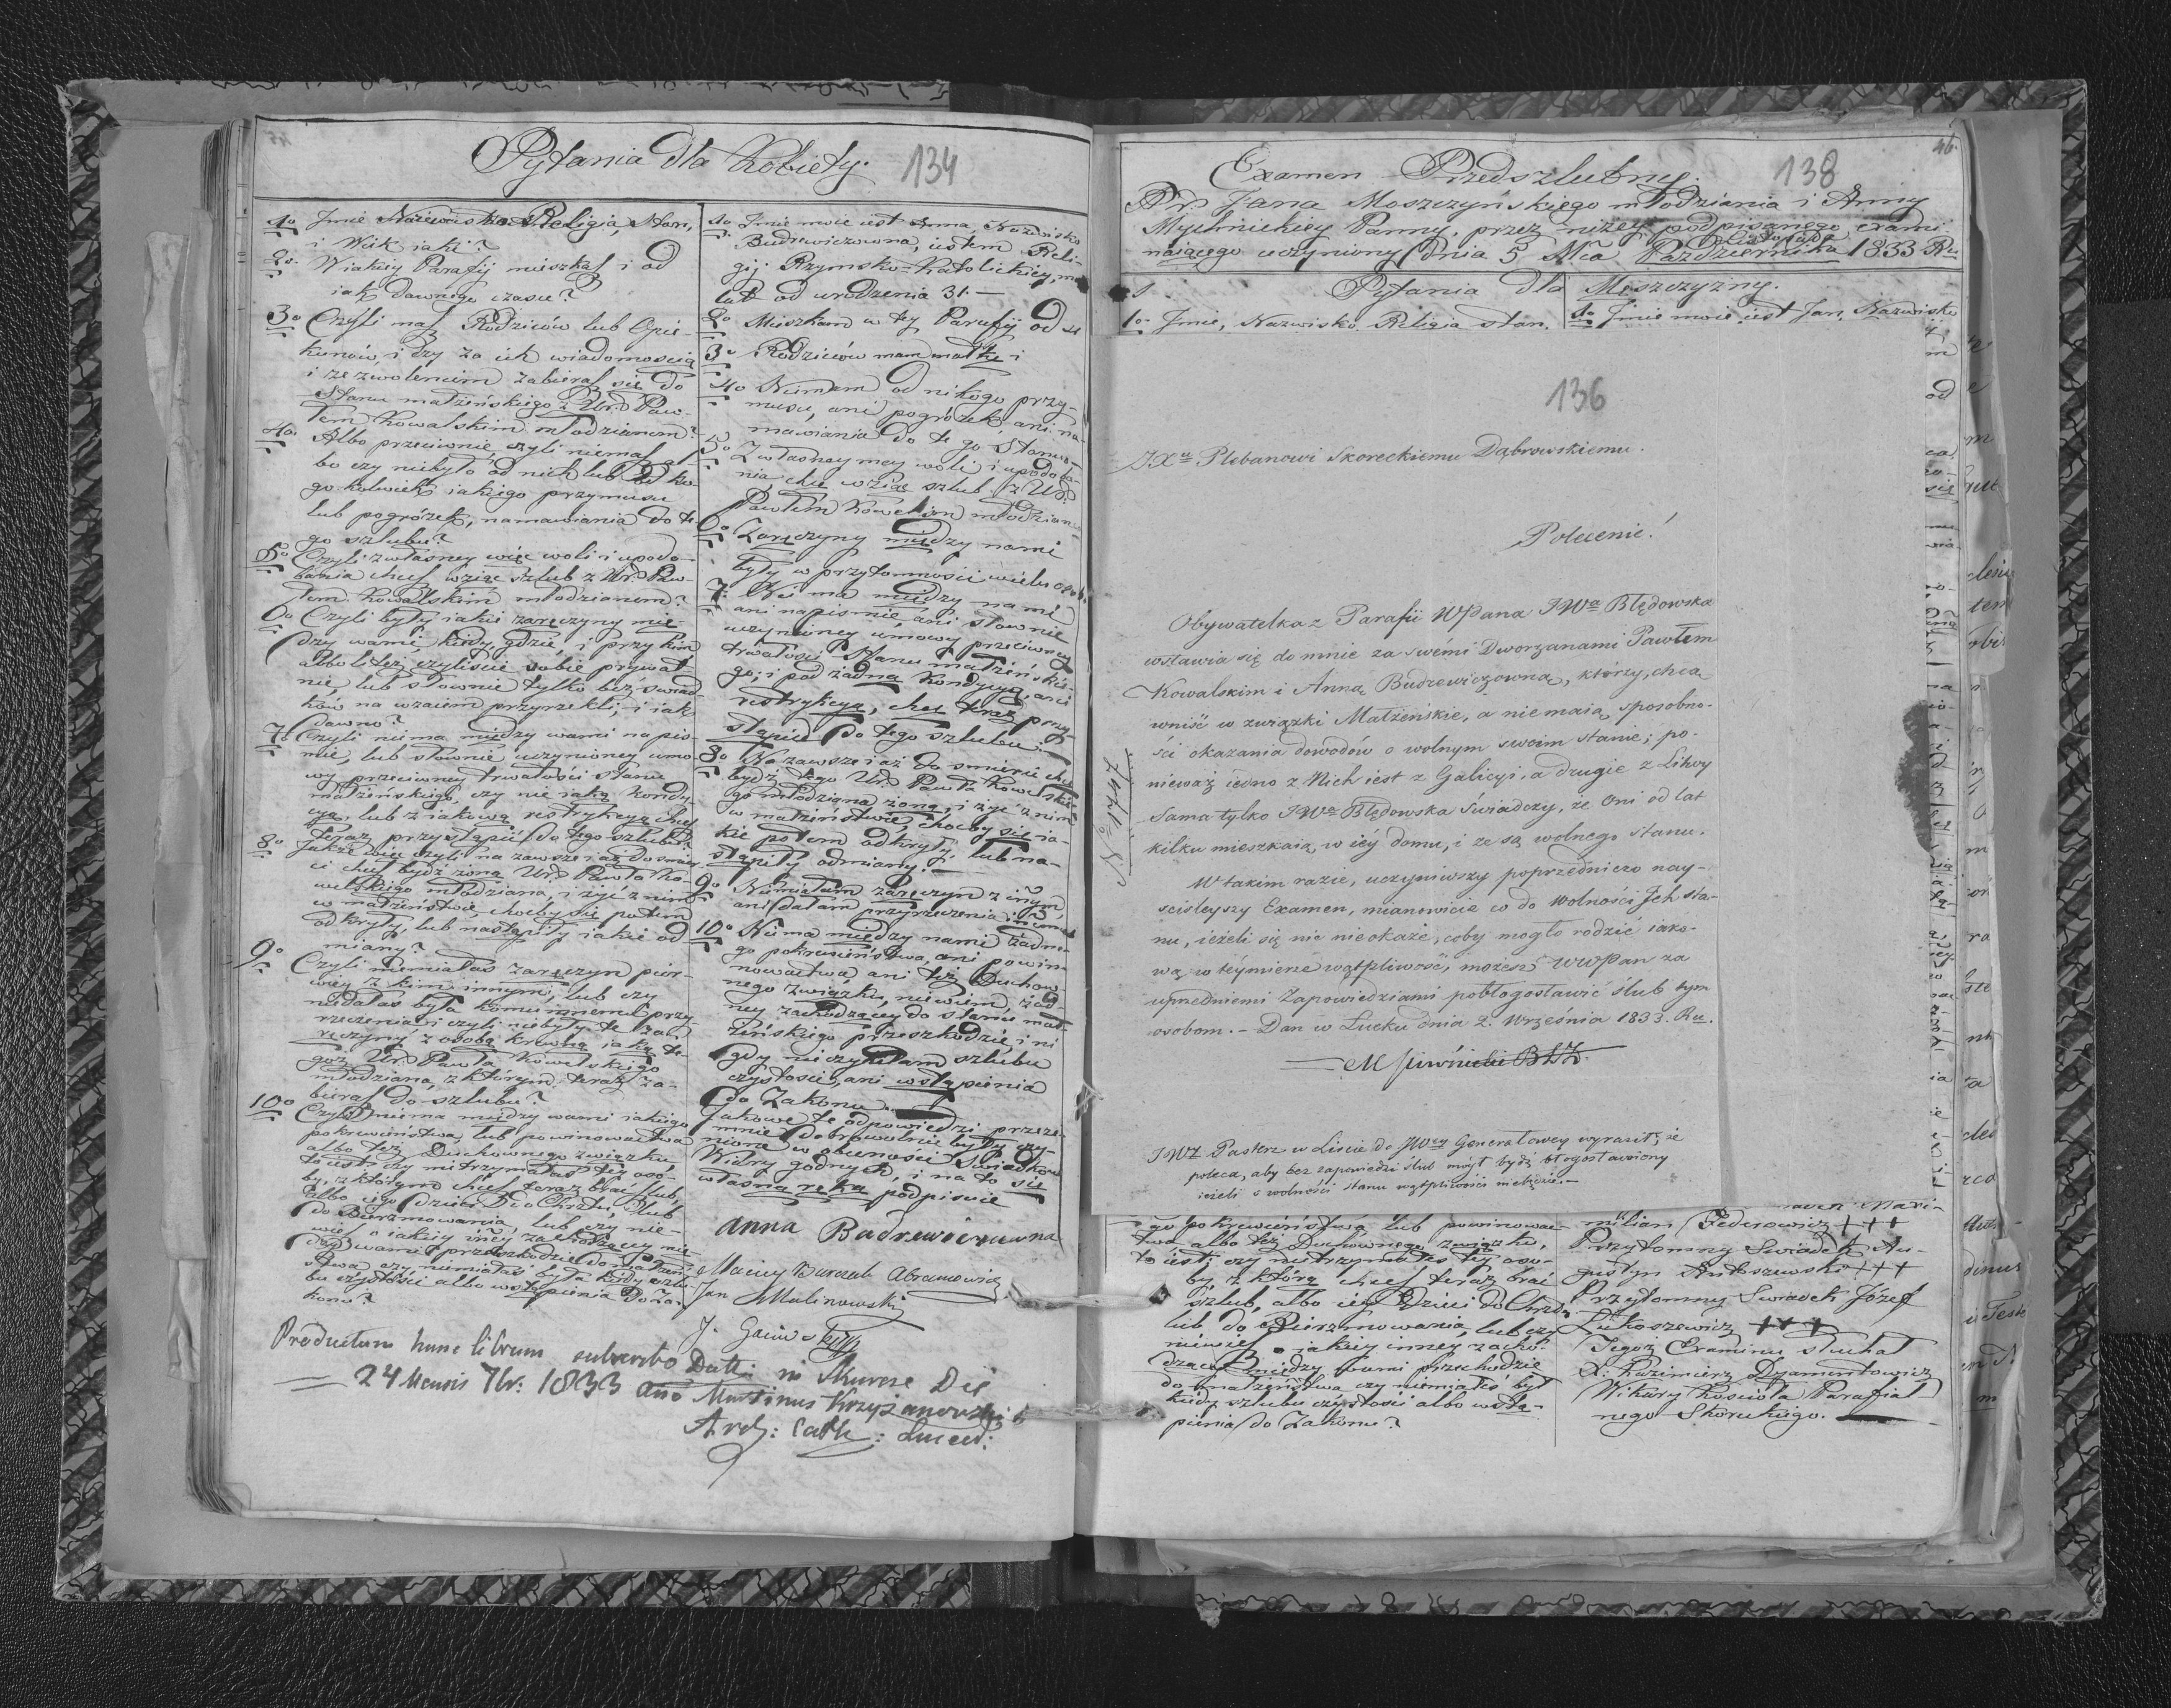 Pytania dla Kobiety.
134
1o Jmie Nazwisko Religia, Stan,
i Wiek iaki?
2o W iakiey Parafij mieszkasz i od
iak dawnego czasu?
3o Czyli masz Rodziców lub Opie-
kunów i czy za ich wiadomością
i zezwoleniem zabierasz się do
Stanu małżeńskiego z Ur. Paw-
łem Kowalskim młodzianem?
4o Albo przeciwnie, czyli niemasz
bo czy niebyło od nich lub od ko-
go kolwiek iakiego przymusu
lub pogróżek, namawiania do te
go szlubu?
5o Czyli z własney woli i upodo-
bania chcesz wziąć szlub z Ur. Paw-
łem Kowalskim młodzianem?
6o Czyli były iakie zaręczyny mię-
dzy wami, kiedy, gdzie, i przy kim
albo li też czyliście sobie prywat-
nie, lub słownie tylko bez świad-
ków na wzaiem przyrzekli, i iak
dawno?
7o Czyli niema między wami na pis-
mie, lub słownie uczynioney umo-
wy przeciwney trwałości stanu
małżeńskiego, czy nie iaką kondy-
cyą, lub z iakową restrykcyą chcesz
teraz przystąpić do tego szlubu?
8o Jakże więc czyli na zawsze i aż do śmier-
ci chcesz bydź żoną Ur. Pawła Ko-
walskiego młodziana, i żyć z nim
w małżeństwie, choćby się potem
odkryły, lub nastąpiły iakie od
miany?
9o Czyli niemiałaś zaręczyn pier-
wey z kim innym, lub czy
niedałaś była komu innemu przy
rzeczenia i czyli niebyły te za-
ręczyny z osobą krewną iaką te-
goż Ur. Pawła Kowelskiego
młodziana, z którym teraz za-
bierasz do szlubu?
10o Czyli niema między wami iakiego
pokrewieństwa, lub powinowactwa
albo też Duchownego związku
to iest czy nietrzymałaś tey oso-
by, z którą chcesz teraz brać szlub,
albo iego dzieci Do Chrztu, lub
do Bierzmowania, lub czy nie-
wiesz o iakiey iney zachodzącey mię
dzy wami przeszkodzie do małżeń
stwa czy niemiałaś była kiedy szlu-
bu czystości albo wstąpienia do Za-
konu?
1o Jmie moie iest Anna, Nazwisko
Budrewiczowna, iestem Reli-
gij Rzymsko-Katolickiey, mam
lat od urodzenia 31.
2o Mieszkam w tey Parafij od
3o Rodziców mam matkę i
4o Niemam od nikogo przy-
musu, ani pogróżek, ani na-
mawiania do te go Stanu
5o Z własney mey woli i upodoba-
nia chcę wziąć szlub z Ur.
Pawłem Kowelskim młodzianem
6o Zaręczyny między nami
były w przytomności wielu osób.
7o Nie ma między nami
ani na pismie, ani słownie
uczynioney umowy przeciwney
trwałości Stanu małżeńskie-
go, i pod żadną kondycyą, ani
restrykcyą, chcę teraz przy-
stąpić do tego szlubu.
8o Na zawsze i aż do śmierci chcę
bydź tego Ur. Pawła Kowelskie-
go młodziana żoną, i żyć z nim
w małżeństwie choćby się ia-
kie potem odkryły, lub na-
stąpiły odmiany.
9o Niemiałam zaręczyn z inym,
ani dałam przyrzeczenia inemu
10o Niema między nami żadne-
go pokrewieństwa, ani powin-
nowactwa ani też Duchow-
nego związku, niewiem żad
ney zachodzącey do stanu mał-
żeńskiego przeszkodzie, i ni
gdy nieczyniłam szlubu
czystości, ani wstąpienia
do Zakonu.
Jakowe te odpowiedzi przeze-
mnie dobrowolnie były czy-
nione w obecności Swiadków
Wiary godnych, i na to się
własną ręką podpisuie
Anna Budrewiczuwna
Maciey Burczak Abramowicz
Jan Malinowski
Productum hunc librum subscribo Datt: in Skurcze Die
24 Mensis 7br: 1833 Ano Martinus Krzyżanowski
Arch: Cath: Luceo:
46.
Examen Przedszlubny.
138
Pr. Jana Moszczyńskiego młodziania i Anny
Mychnickiey Panny, przez niżey podpisanego exami
nuiącego uczyniony dnia 5 Mca Października 1833 Ru
Listopada
Pytania dla Mężczyzny.
1o Jmie, Nazwisko Religia stan.
1o Jmie moie iest Jan, Nazwisko
136
JXu Plebanowi Skoreckiemu Dąbrowskiemu.
Polecenie!
Obywatelka z Parafii WPana JWa Błędowska
wstawia się do mnie za swemi Dworzanami Pawłem
Kowalskim i Anną Budrewiczowną, którzy, chcą
wniść w związki Małżeńskie, a niemaią sposobno-
ści okazania dowodów o wolnym swoim stanie; po-
nieważ iedno z Nich iest z Galicyi, a drugie z Litwy
Sama tylko JWa Błędowska świadczy, że Oni od lat
kilku mieszkaią w iéy domu, i że są wolnego stanu.
W takim razie, uczyniwszy poprzedniczo nay-
ścisleyszy Examen, mianowicie co do wolności Jch sta-
nu, ieżeli się nic nieokaże, coby mogło rodzić iako-
wą w téymierze wątpliwość, możesz WWPan za
uprzedniemi Zapowiedziami pobłogosławić ślub tym
osobom. - Dan w Łucku dnia 2. Września 1833. Ru.
JWX Pasterz w Liście do JWey Generałowey wyraził, że
poleca, aby bez zapowiedzi ślub mógł bydź błogosławiony
ieżeli o wolności stanu wątpliwości niebędzie.
go pokrewieństwa lub powinowac-
twa albo też Duchównego związku,
to iest; czy nietrzymałeś tey oso-
by, z którą chcesz teraz brać
szlub, albo iey Dzieci do Chrztu
lub do Bierzmowania, lub czy
niewiesz o iakiey inney zacho-
dzącey między wami przeszkodzie
do małżeństwa czy niemiałeś był
kiedy szlubu czystości albo wstą-
pienia do Zakonu?
milian Federowicz +++
Przytomny Swiadek Au-
gustyn Antoszewski +++
Przytomny Swiadek Józef
Łukoszewicz +++
Tegoż Examinu słuchał
X. Kazimierz Dyamentowicz
Wikary Kościoła Parafial
nego Skoreckiego.